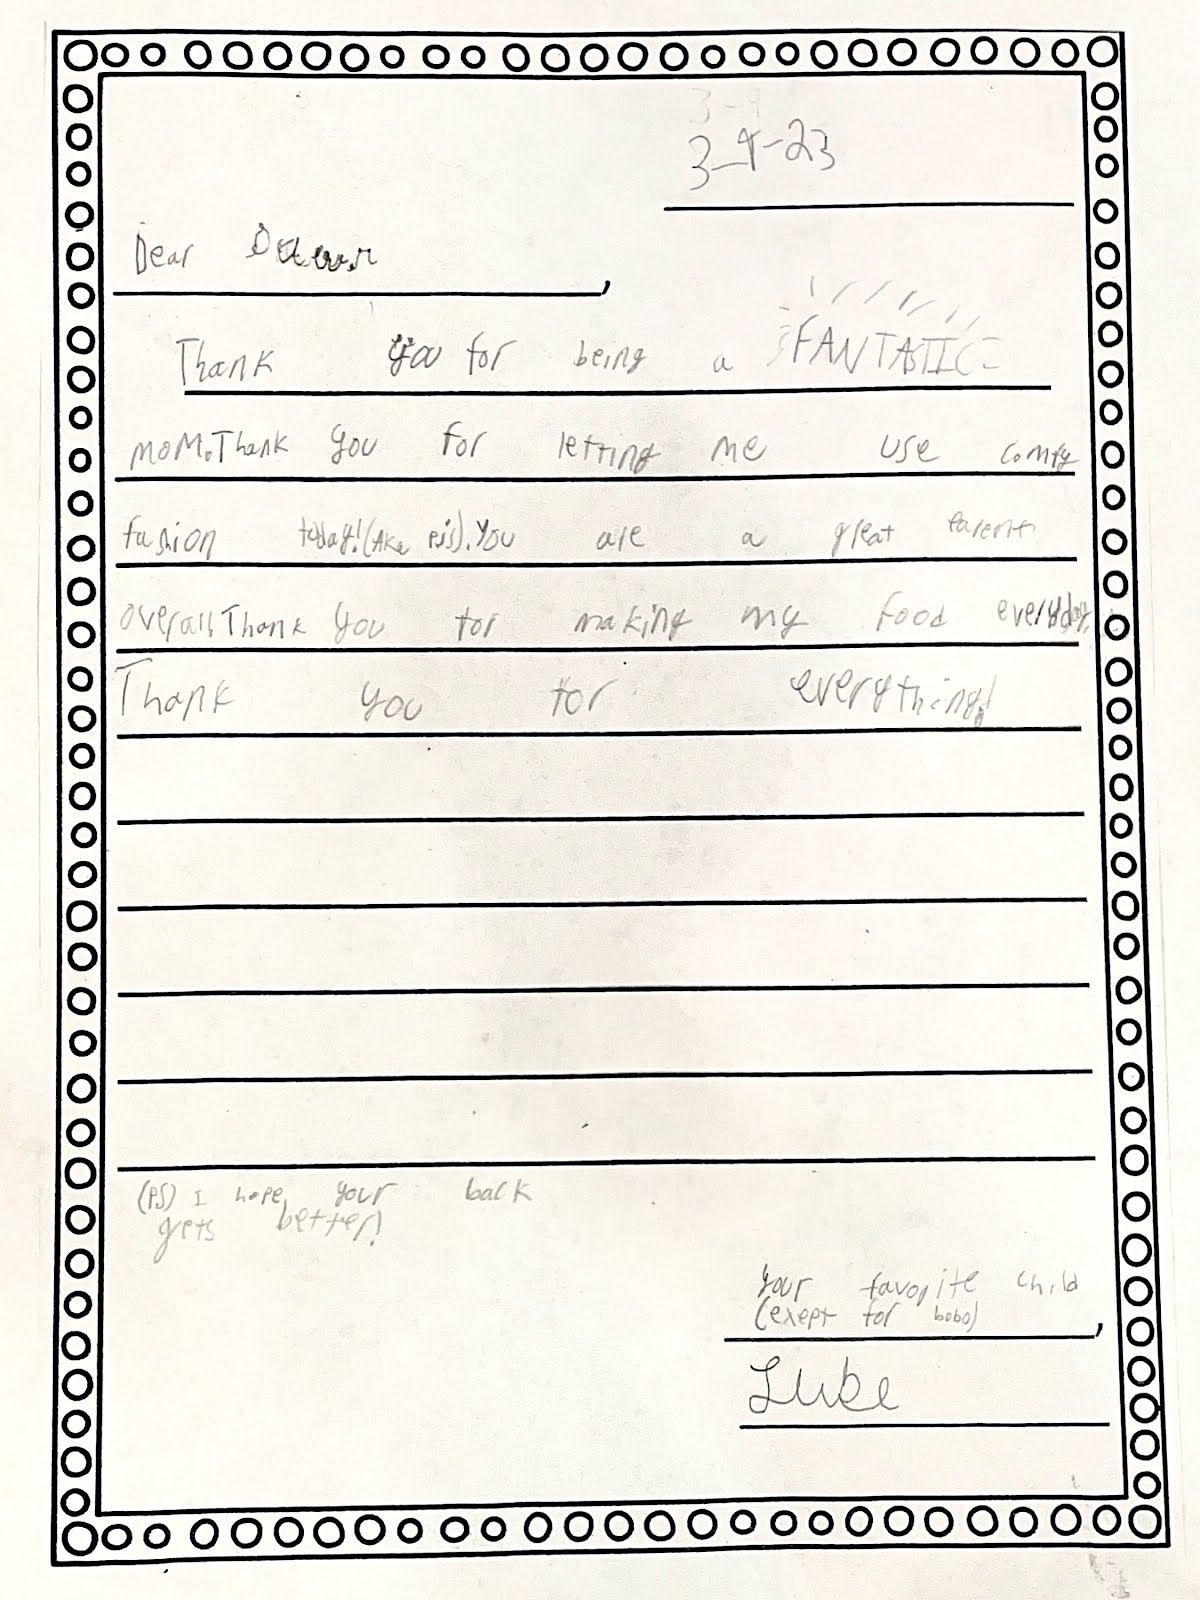 3-9-23
Dear
,
Thank you for being a FANTASTIC
moM.Thank you for letting me use comfy
fashion today!(Aka PJs).You are a great parent
overall,Thank you for making my food everyday.
Thank you for everything!
(PS) I hope your back
gets better!
Your favorite child
(exept for bobo)
,
Luke